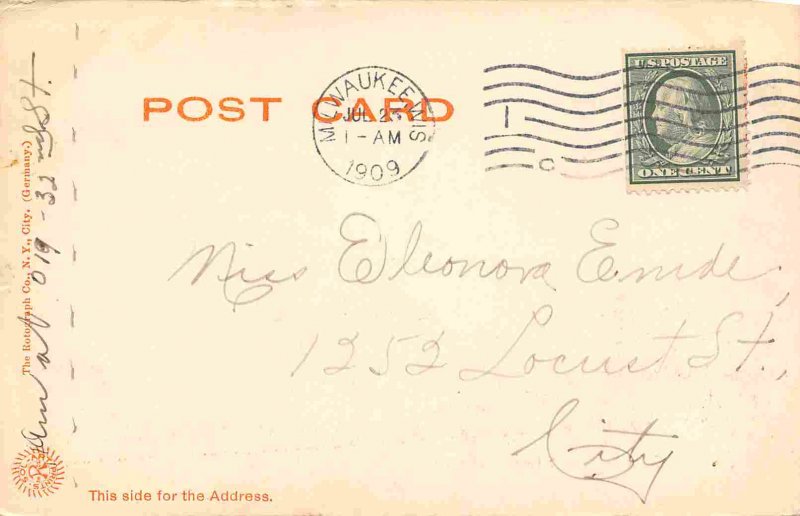 POST CARD
MILWAUKEE, WIS
JUL 23
1-AM
1909
1
C
U.S. POSTAGE
ONE CENT
Miss Eleonora Emde,
1252 Locust St.,
City.
Am at 619-32nd St.
The Rotograph Co., N. Y., City, (Germany.)
This side for the Address.